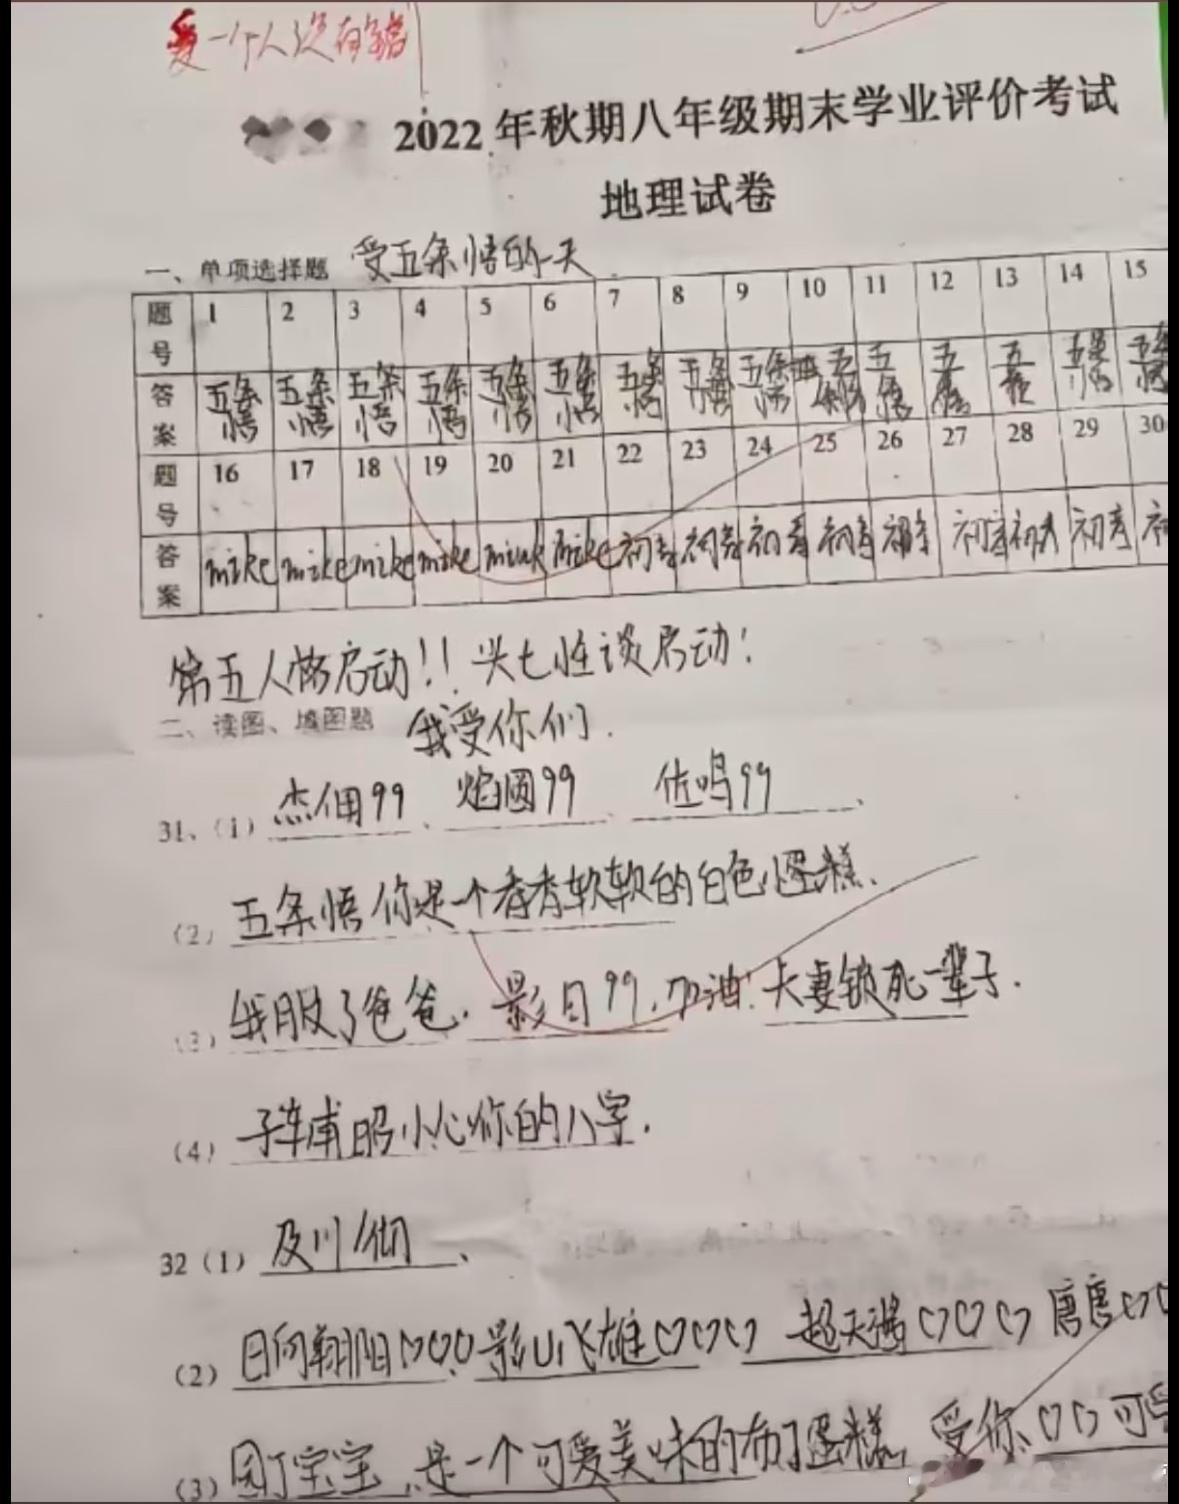 爱一个人没有错
2022年秋期八年级期末学业评价考试
地理试卷
一、单项选择题 爱五条悟的一天
题号 1 2 3 4 5 6 7 8 9 10 11 12 13 14 15
答案 五条悟 五条悟 五条悟 五条悟 五条悟 五条悟 五条悟 五条悟 五条悟 五条悟 五条悟 五条悟 五条悟 五条悟 五条悟
题号 16 17 18 19 20 21 22 23 24 25 26 27 28 29 30
答案 mike mike mike mike miuk mike 初春 初春 初春 初春 初春 初春 初春 初春 初
第五人格启动!! 头七怪谈启动!
二、读图、填图题 我爱你们.
31、(1) 杰佣99、焰囚99、佐鸣99、
(2) 五条悟你是一个香香软软的白色小蛋糕、
(3) 我服了爸爸. 影日99.加油! 夫妻锁死一辈子.
(4) 子车甫昭小心你的八字.
32 (1) 及川彻、
(2) 日向翔阳♡♡♡、影山飞雄♡♡♡ 超天酱♡♡♡ 唐唐♡♡
(3) 园丁宝宝、是一个可爱美味的布丁蛋糕. 爱你♡♡ 可